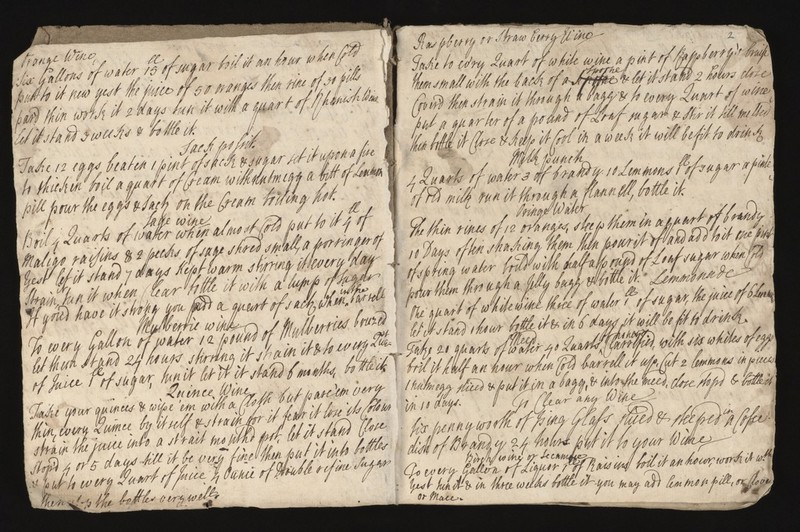 Orange Wine
Six Gallons of water 15 ll of sugar boil it an hour when Cold
put to it new yest the juice of 50 oranges then rine of 30 pills
pard thin work it 2 days tun it with a quart of Rhanish Wine
let it stand 3 weeks & bottle it
Sack posit
Take 12 eggs beaten 1 pint of sack & sugar set it upon a fire
to thicken boil a quart of Cream with nutmegg a bitt of Lemmon
pill pour the eggs & sack on the Cream boiling hot.
Sage wine
Boil 4 Quarts of water when almost Cold put to it 4 ll of
Maligo raisins & 2 pecks of sage shred small a porringer of
yest let it stand 7 days kept warm stiring it every day
strain, tun it when Clear bottle it with a lump of sugar
If you'd have it strong you add a quart of sack when barrell
Mulberrie wine
To every Gallon of water 12 pound of Mulberries bruzed
let them stand 24 hours stiring it strain it & to every
of Juice 1 ll of sugar, tun it let it stand 6 months, bottle it
Quince Wine
Take your quinces & wipe 'em with a Cloth but pare 'em very
thin, every Quince by it self & strain for it fear it lose its Colour
strain the juice into a strait mouthd pot, let it stand Close
stopd 4 or 5 days till it be very fine then put it into bottles
& put to every Quart of Juice 1/4 Ounce of Double refine Sugar
then the bottles very well
2
Raspberry or Straw berry Wine
Take to every Quart of white wine a pint of Rassberrys bruise
them small with the back of a spoone & let it stand 2 hours close
Coverd then strain it through a bagg & to every Quart of wine
put a quarter of a pound of Loaf sugar & stir it till melted
then bottle it Close & keep it Cool in a week it will be fit to drink
Milk punch
4 Quarts of water 3 off brandy 10 Lemmons 1 ll of sugar a pinte
of old milk run it through a flannell, bottle it
Oringe Water
The thin rines of 12 oranges, steep them in a quart of brandy
10 Days often shashing them then pour it of and ad to it one
of spring water boild with half a pound of Loaf sugar when Cold
pour them through a jelly bagg & bottle it
Lemmonade
One quart of white wine three of water 1 ll of sugar the juice of 6 Lemons
let it stand 1 hour bottle it & in 6 days it will be fit to drink
Meed
Take 20 quarts of water 40 Quarts of honey Clarrified with six whites of eggs
boil it half an hour when Cold barrell it up Cut 2 lemmons in pieces
1 nutmegg sliced & put it in a bagg, & into the meed, Close stopd & bottle it
in 10 days.
To Clear any Wine
Six pennyworth of Ising Glass sliced & steeped in a Cofee
dish of Brandy 24 hours put it to your Wine
Birch wine or
To every Gallon of Liquor 1 ll of Raisins boil it an hour, work it with
yest tun it & in three weeks bottle it you may add lemmon pill, or Cloves
or Mace.